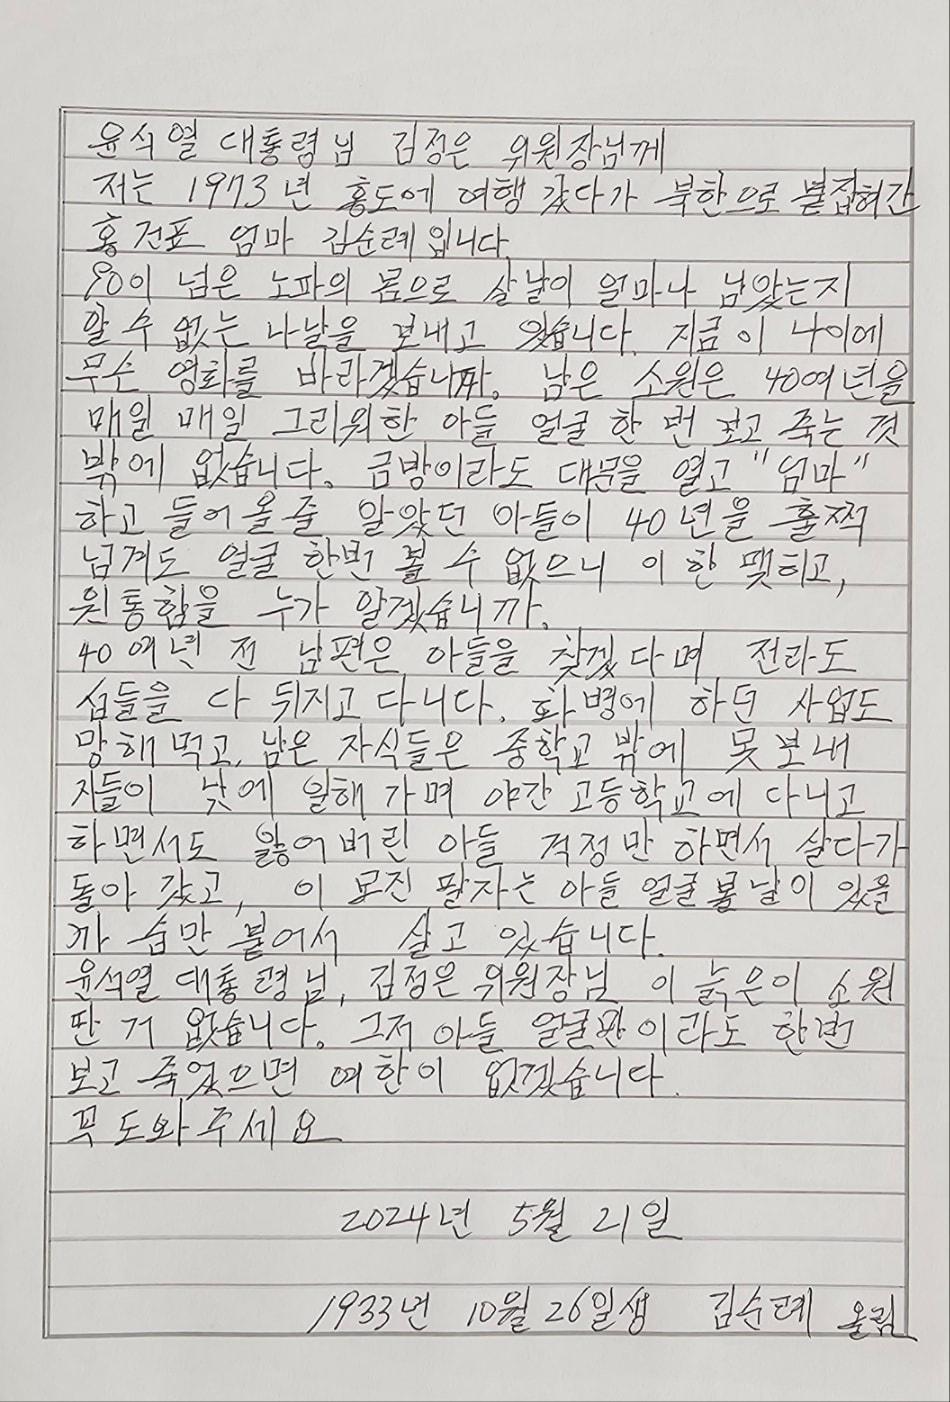 윤석열 대통령님 김정은 위원장님께
저는 1973년 홍도에 여행 갔다가 북한으로 붙잡혀간
홍건표 엄마 김순례입니다.
90이 넘은 노파의 몸으로 살날이 얼마나 남았는지
알 수 없는 나날을 보내고 있습니다. 지금 이 나이에
무슨 영화를 바라겠습니까. 남은 소원은 40여년을
매일 매일 그리워한 아들 얼굴 한 번 보고 죽는 것
밖에 없습니다. 금방이라도 대문을 열고 "엄마"
하고 들어올줄 알았던 아들이 40년을 훌쩍
넘겨도 얼굴 한번 볼 수 없으니 이 한 맺히고,
원통함을 누가 알겠습니까.
40여년 전 남편은 아들을 찾겠다며 전라도
섬들을 다 뒤지고 다니다. 화병에 하던 사업도
망해먹고, 남은 자식들은 중학교 밖에 못보내
자들이 낮에 일해 가며 야간 고등학교에 다니고
하면서도 잃어버린 아들 걱정만 하면서 살다가
돌아 갔고, 이 모진 팔자는 아들 얼굴 볼 날이 있을
까 숨만 붙어서 살고 있습니다.
윤석열 대통령님, 김정은 위원장님 이 늙은이 소원
딴 거 없습니다. 그저 아들 얼굴만이라도 한번
보고 죽었으면 여한이 없겠습니다.
꼭 도와주세요
2024년 5월 21일
1933년 10월 26일생 김순례 올림